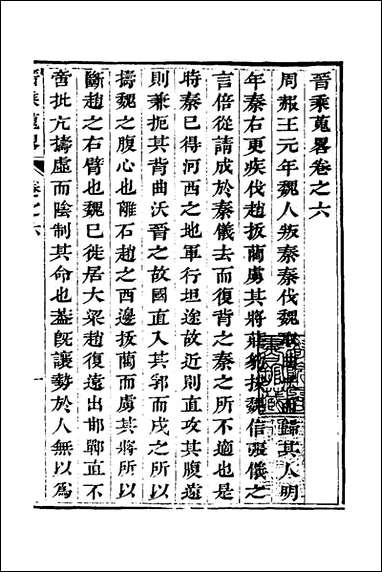 晉乘蒐畧卷之六
周赧王元年魏人叛秦秦伐魏取曲歸其人明
年秦右更疾伐趙拔藺虜其將莊豹按魏信張儀之
言倍從請成於秦儀去而復背之秦之所不適也是
時秦已得河西之地軍行坦途故近則直攻其腹遠
則兼扼其背曲沃晉之故國直入其郛而戌之所以
擣魏之腹心也離石趙之西邊拔藺而虜其將所以
斷趙之右臂也魏已徙居大梁趙復遠出邯鄲直不
啻批亢擣虛而陰制其命也葢旣讓勢於人無以爲
晉乘蒐畧
卷之六
一